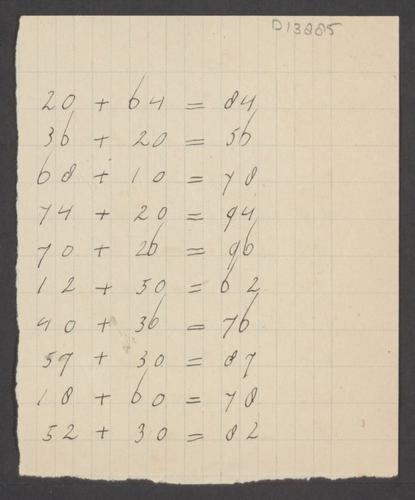 D13885
20 + 64 = 84
36 + 20 = 56
68 + 10 = 78
74 + 20 = 94
70 + 26 = 96
12 + 50 = 62
40 + 36 = 76
57 + 30 = 87
18 + 60 = 78
52 + 30 = 82